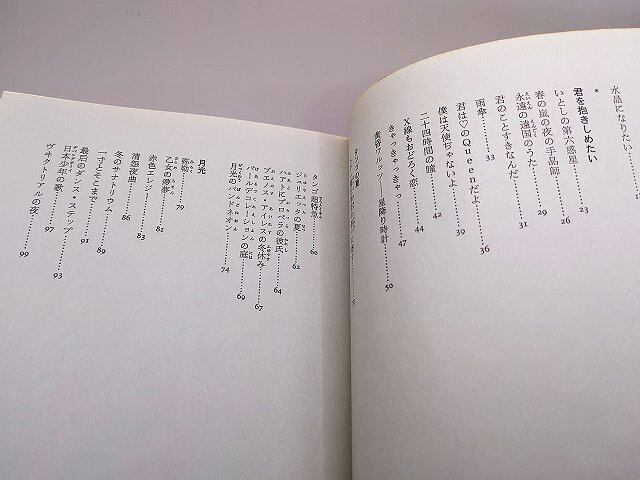 水晶になりたい
*
君を抱きしめたい
いとしの第六惑星……23
春の嵐の夜の手品師……26
永遠の遠国のうた……29
君のことすきなんだ。……31
雨傘……33
君は♡のQueenだよ……36
僕は天使ぢゃないよ……39
二十四時間の瞳……42
X線もおどろく恋……44
きゃっきゃっきゃっ……47
黄昏ワルツ——星降り時計……50
タンゴ超特急……60
ジュリエットの夏……62
ハアトにプロペラの彼氏……64
ブエノス・アイレスの冬休み……67
パールデコレーションの庭……69
月光のバンドネオン……74
月光
寄物……79
乙女の儚夢……81
赤色エレジー……83
清怨夜曲……86
冬のサナトリウム……89
一寸そこまで……91
最后のダンス・ステップ
日本少年の歌……93
ヴヰクトリアルの夜……97
99